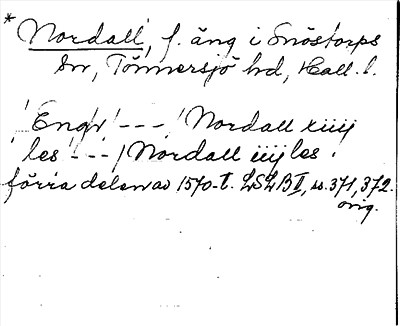 * Nordall, f. äng i Snöstorps
sn, Tönnersjö hd, Hall. l.
"Engr" --- / Nordall xiiij
les --- / Nordall iiij les.
förra delen av 1570-t. LSLB II, s. 371, 372.
orig.